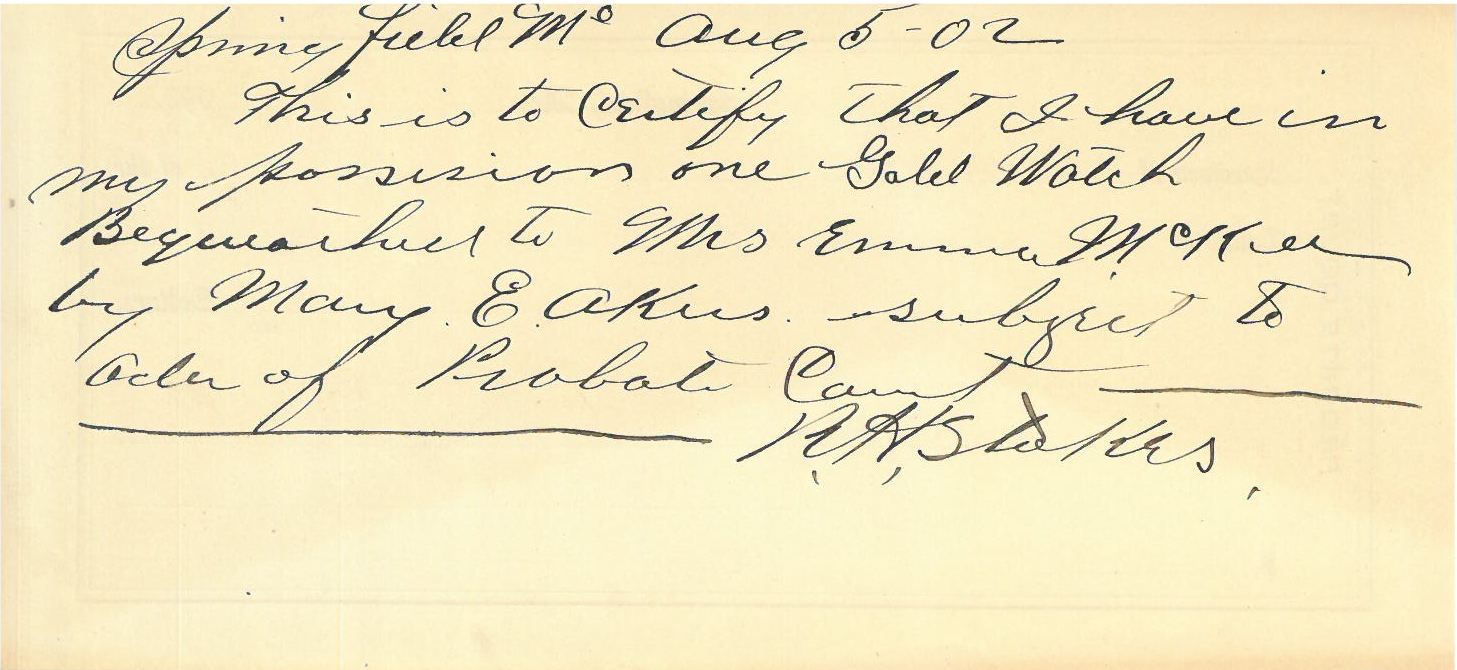 Springfield Mo Aug 5-02
This is to Certify that I have in
my possession one Gold Watch
Bequeathed to Mrs Emma McKee
by Mary E. Akers. subject to
Oder of Probate Court
R. H. Stokes.